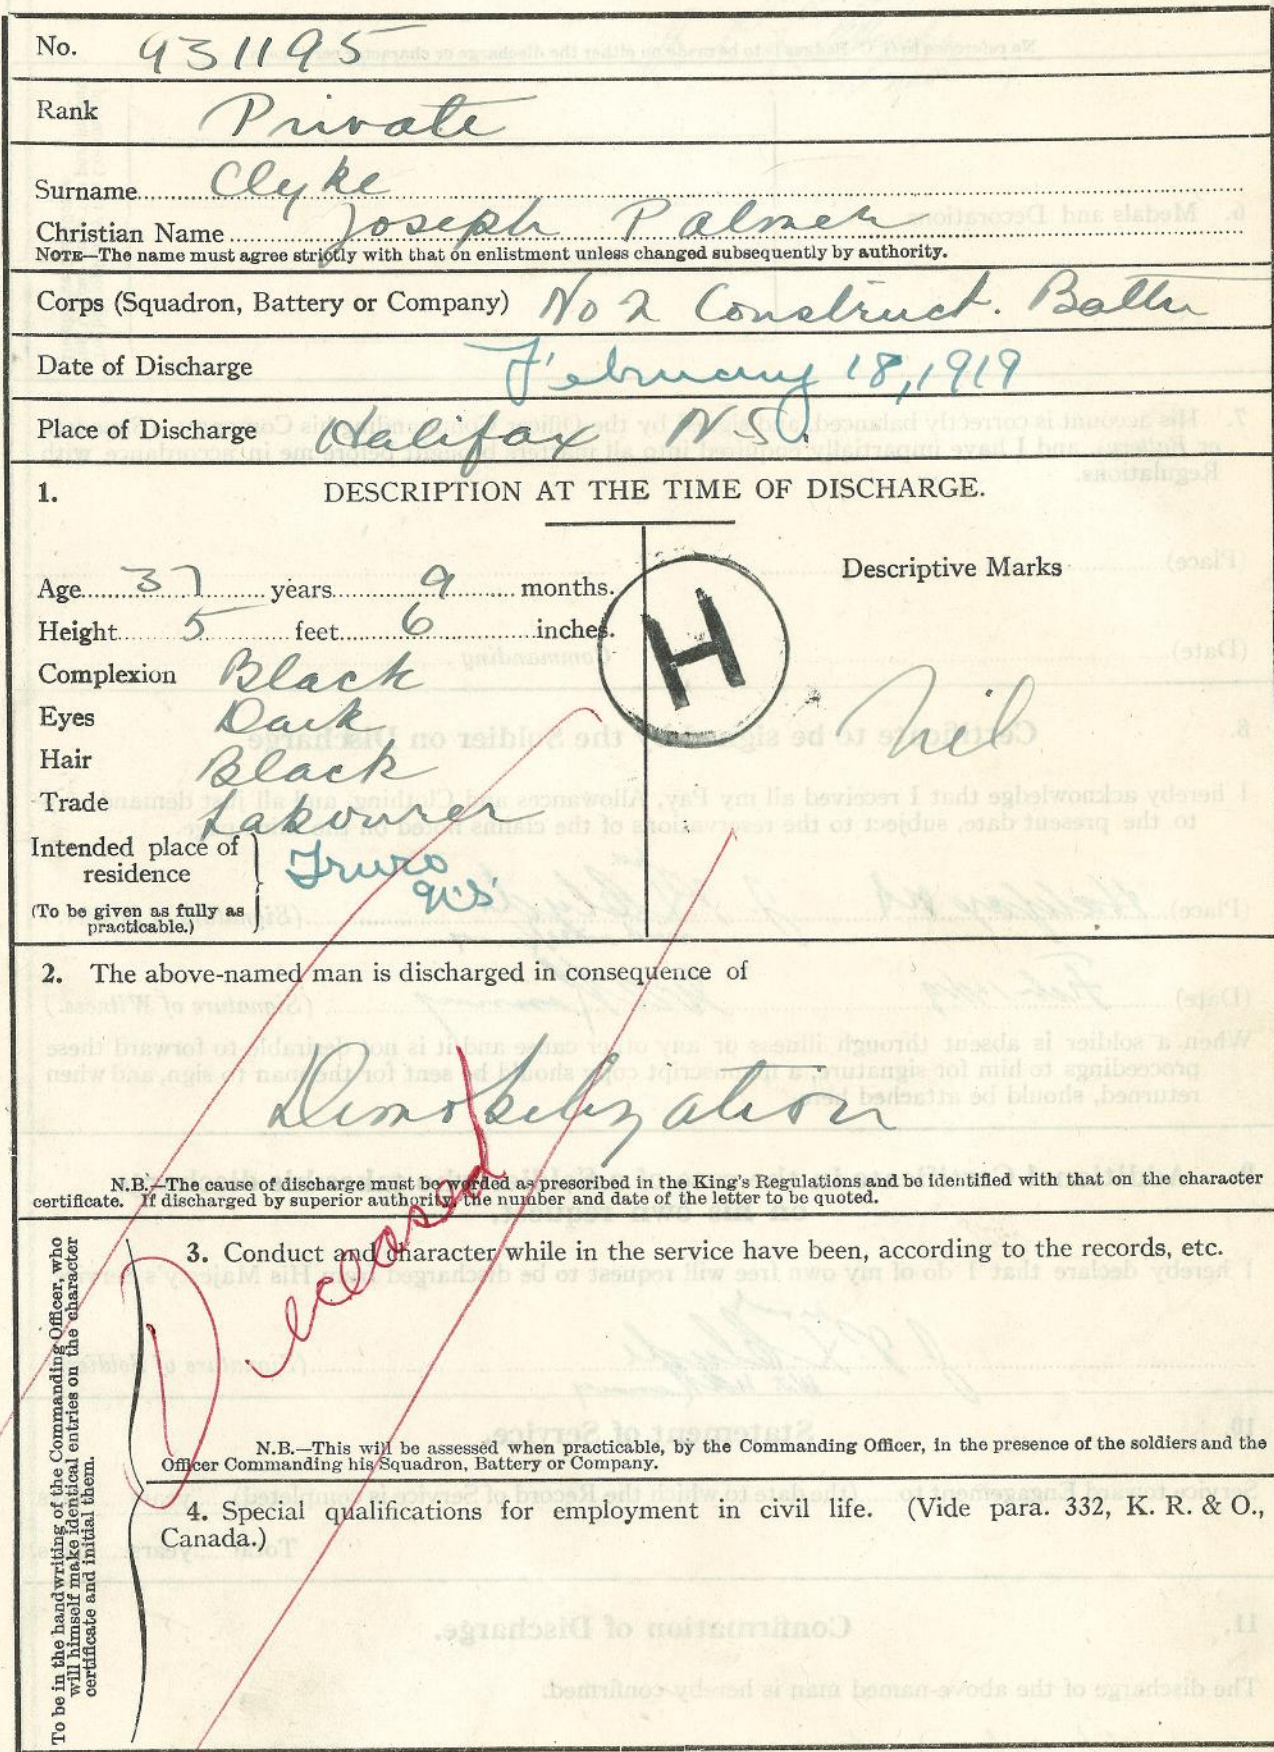 No. 931195
Rank Private
Surname Clyke
Christian Name Joseph Palmer
NOTE—The name must agree strictly with that on enlistment unless changed subsequently by authority.
Corps (Squadron, Battery or Company) No 2 Construct. Battn
Date of Discharge February 18, 1919
Place of Discharge Halifax N.S.
1. DESCRIPTION AT THE TIME OF DISCHARGE.
Age 37 years 9 months.
Height 5 feet 6 inches.
Complexion Black
Eyes Dark
Hair Black
Trade Labourer
Intended place of residence Truro N.S.
(To be given as fully as practicable.)
H
Descriptive Marks
Nil
2. The above-named man is discharged in consequence of
Demobilization
N.B.—The cause of discharge must be worded as prescribed in the King's Regulations and be identified with that on the character
certificate. If discharged by superior authority, the number and date of the letter to be quoted.
Deceased
To be in the handwriting of the Commanding Officer, who
will himself make identical entries on the character
certificate and initial them.
3. Conduct and character while in the service have been, according to the records, etc.
N.B.—This will be assessed when practicable, by the Commanding Officer, in the presence of the soldiers and the
Officer Commanding his Squadron, Battery or Company.
4. Special qualifications for employment in civil life. (Vide para. 332, K. R. & O.,
Canada.)